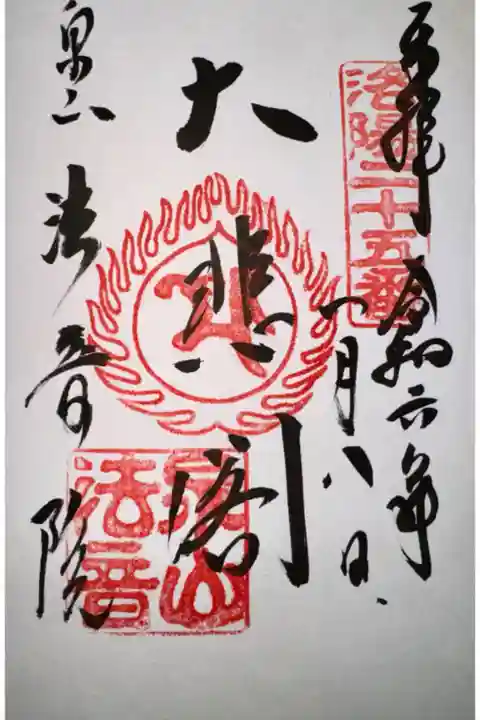 奉拝 令和六年
一月八日
洛陽二十五番
大悲閣
泉山
法音
泉山 法音院